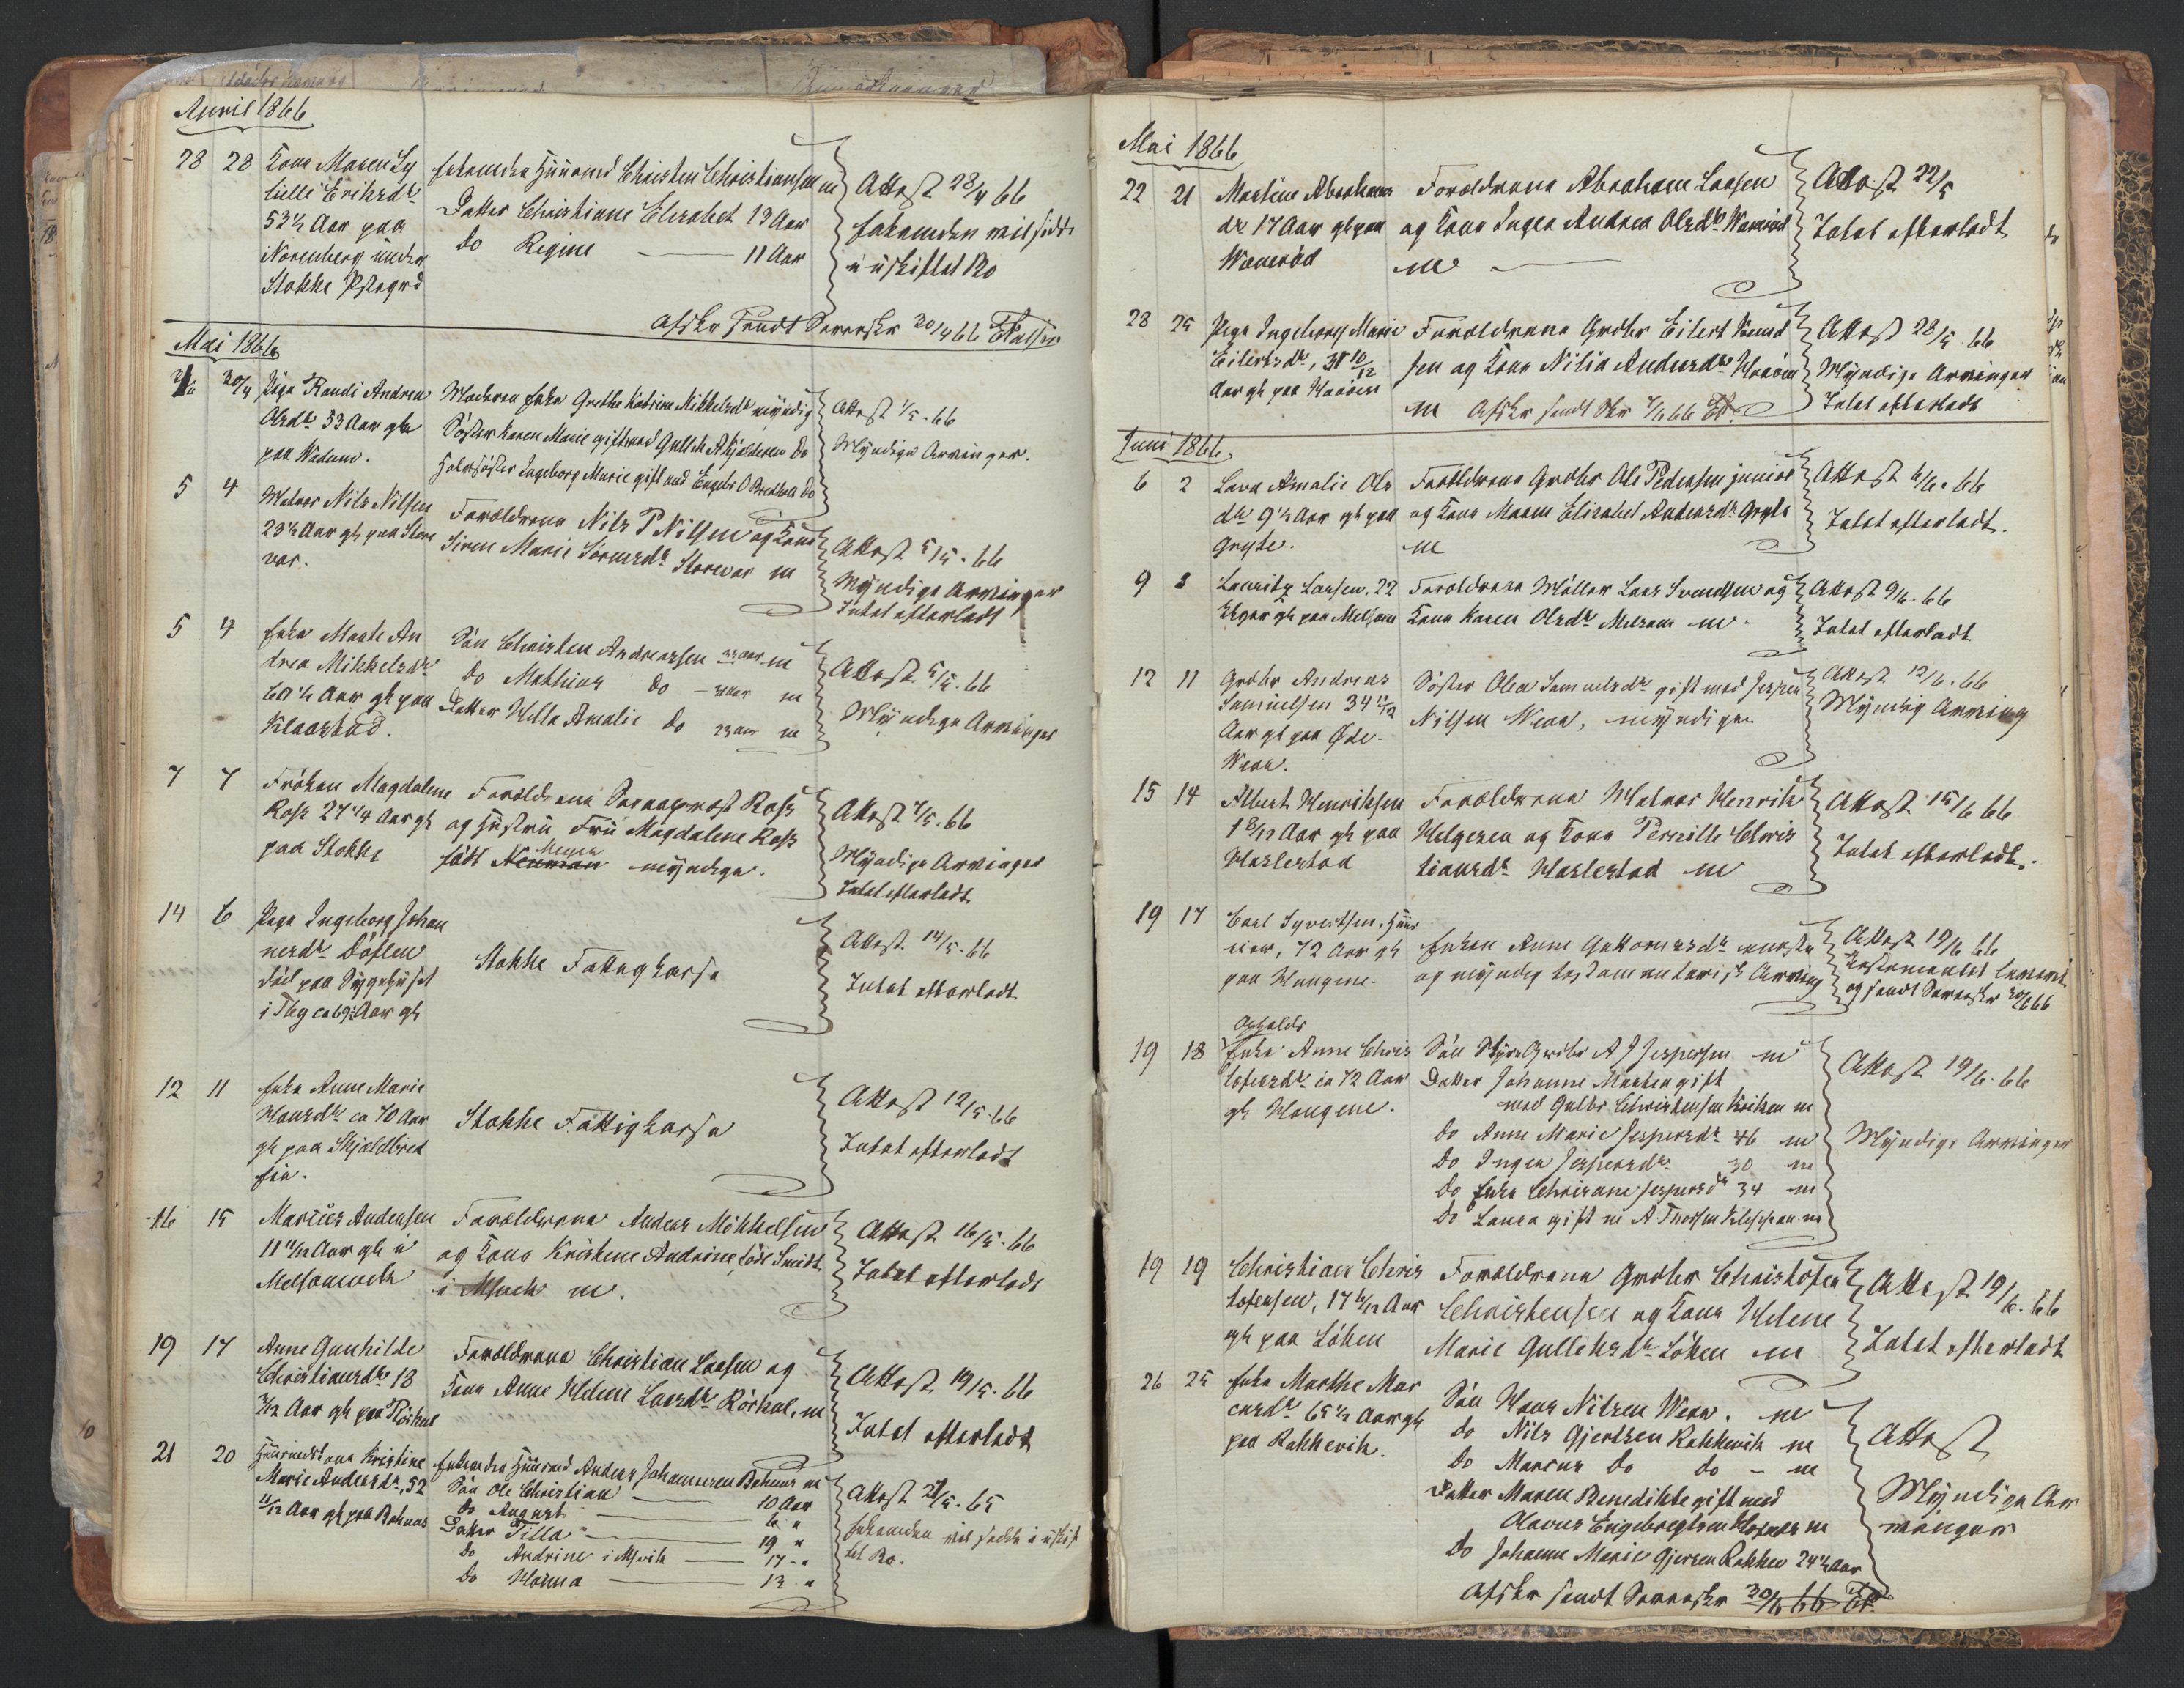 April 1866
28 28 Kone Maren Sy
lielle Eriksdr
53½ Aar paa
Norenberg under
Stokke Pstegrd
Enkemden Huusmd Christen Christiansen m
Datter Christiane Elisabet 13 Aar
Do Regine — 11 Aar
Attest 28/4 66
Enkemden vil sidde
i uskiftet Bo
Afskr sendt Sorenskr 30/4 66
Mai 1866
1/5 30/4 Pige Randi Andrea
Olsdr 33 Aar gl
paa Vadum.
Moderen Enke Grethe Katrine Mikkelsdr myndig
Søster Karen Marie gift med Gullik A Hjalderen Do
Halvsøster Ingeborg Marie gift med Engebr O Do
Attest 1/5 - 66
Myndige Arvinger.
5 4 Matros Nils Nilsen
23½ Aar gl paa Store
var.
Forældrene Nils P Nilsen og Kone
Siren Marie Sørensdr Storevar m
Attest 5/5 - 66
Myndige Arvinger
Intet efterladt
5 4 Enke Marte An
drea Mikkelsdr
60½ Aar gl paa
Klaastad.
Søn Christen Andreassen Aar m
Do Mathias Do — Aar m
Datter Hella Amalie Do 23 Aar m
Attest 5/5 - 66
Myndige Arvinger
7 7 Frøken Magdalene
Ross 27¼ Aar gl
paa Stokke
Forældrene Sorenprost Ross
og Hustru Fru Magdalene Ross
født Neuman Meyer myndige.
Attest 7/5 - 66
Myndige Arvinger
Intet efterladt
14 6 Pige Ingeborg Johan
nesdr Døflen
død paa Sygehuset
i Tbg ca 69½ Aar gl
Stokke Fattigkasse
Attest 14/5 - 66
Intet efterladt
12 11 Enke Anne Marie
Hansdr ca 70 Aar
gl paa Skjeldbred
eie.
Stokke Fattigkasse
Attest 12/5 - 66
Intet efterladt
16 15 Marius Andersen
11 11/12 Aar gl i
Melsomvik
Forældrene Anders Mikkelsen
og Kone Kristene Andrine født Smidt
i Msvik m.
Attest 16/5 - 66
Intet efterladt
19 17 Anne Gunhilde
Christiansdr 18
3/12 Aar gl paa Røskal
Forældrene Christian Larsen og
Kone Anne Helene Larsdr Røskal, m
Attest 19/5 - 66
Intet efterladt
21 20 Huusmdskone Kristine
Marie Andersdr, 52
11/12 Aar gl paa Bakaas
Enkemden Huusmd Anders Johannesen Bakaas m
Søn Ole Christian — 10 Aar
Do August — 6 "
Datter Tilla — 19 "
Do Andrine i Msvik — 17 - "
Do Hanna — 13 "
Attest 21/5 - 65
Enkemden vil sidde i uskif
tet Bo.
Mai 1866
22 21 Martine Abrahams
dr 17 Aar gl paa
Wennerød
Forældrene Abraham Larsen
og Kone Inger Andrea Olsdr Wennerød
m —
Attest 22/5
Intet efterladt
28 25 Pige Ingeborg Marie
Eilertsdr, 31 10/12
Aar gl paa Haaøen
Forældrene Grdbr Eilert Knud
sen og Kone Nilia Andersdr Haaøen
m Afskr sendt Skr 2/6 66
Attest 28/5 - 66
Myndige Arvinger
Intet efterladt
Juni 1866
6 2 Lava Amalie Ols
dr 9½ Aar gl paa
Gryte.
Forældrene Grdbr Ole Pedersen junior
og Kone Maren Elisabet Andersdr Gryte
m
Attest 6/6 - 66
Intet efterladt.
9 3 Lauritz Larsen, 22
Uger gl paa Melsom
Forældrene Møller Lars Svendsen og
Kone Karen Olsdr Melsom m.
Attest 9/6 - 66
Intet efterladt
12 11 Grdbr Andreas
Samuelsen 34 11/12
Aar gl paa Øde-
Wear.
Søster Olea Samuelsdr gift med Jesper
Nilsen Wear, myndige
Attest 12/6 - 66
Myndig Arving
15 14 Albert Henriksen
1 8/12 Aar gl paa
Haslestad
Forældrene Matros Henrik
Helgesen og Kone Pernille Chris
tiansdr Haslestad m
Attest 15/6 66
Intet efterladt.
19 17 Carl Syvertsen, Huus
eier, 72 Aar gl
paa Haugene.
Enken Anne Guttormsdr eneste
og myndig testamentarisk Arving
Attest 19/6 66
Testamentet leveret
og sendt Sorenskr 30/6 66
19 18 Opholds
Enke Anne Chris
tofersdr ca 72 Aar
gl Haugene.
Søn Grdbr A J Jespersen m
Datter Johanne Marten gift
med Gulbr Christensen m
Do Anne Marie Jespersdr 46 m
Do Inger Jespersdr 30 m
Do Enke Christiane Jespersdr 34 m
Do Laura gift m A Thorsen m
Attest 19/6 - 66
Myndige Arvinger
19 19 Christian Chris
tofersen, 17 6/12 Aar
gl paa Løken
Forældrene Grdbr Christofer
Christensen og Kone Helene
Marie Gulliksdr Løken m
Attest 19/6 - 66
Intet efterladt
26 25 Enke Marthe Mar
cusdr 65½ Aar gl
paa Rakkevik.
Søn Hans Nilsen Wear. m
Do Nils Gjertsen Rakkevik m
Do Marcus Do Do - m
Datter Maren Benedikte gift med
Olavus Engebregtsen m
Do Johanne Marie Gjersen Rakkev 24½ Aar
Attest
Myndige Ar
vinger
Afskr sendt Sorenskr 30/6 66